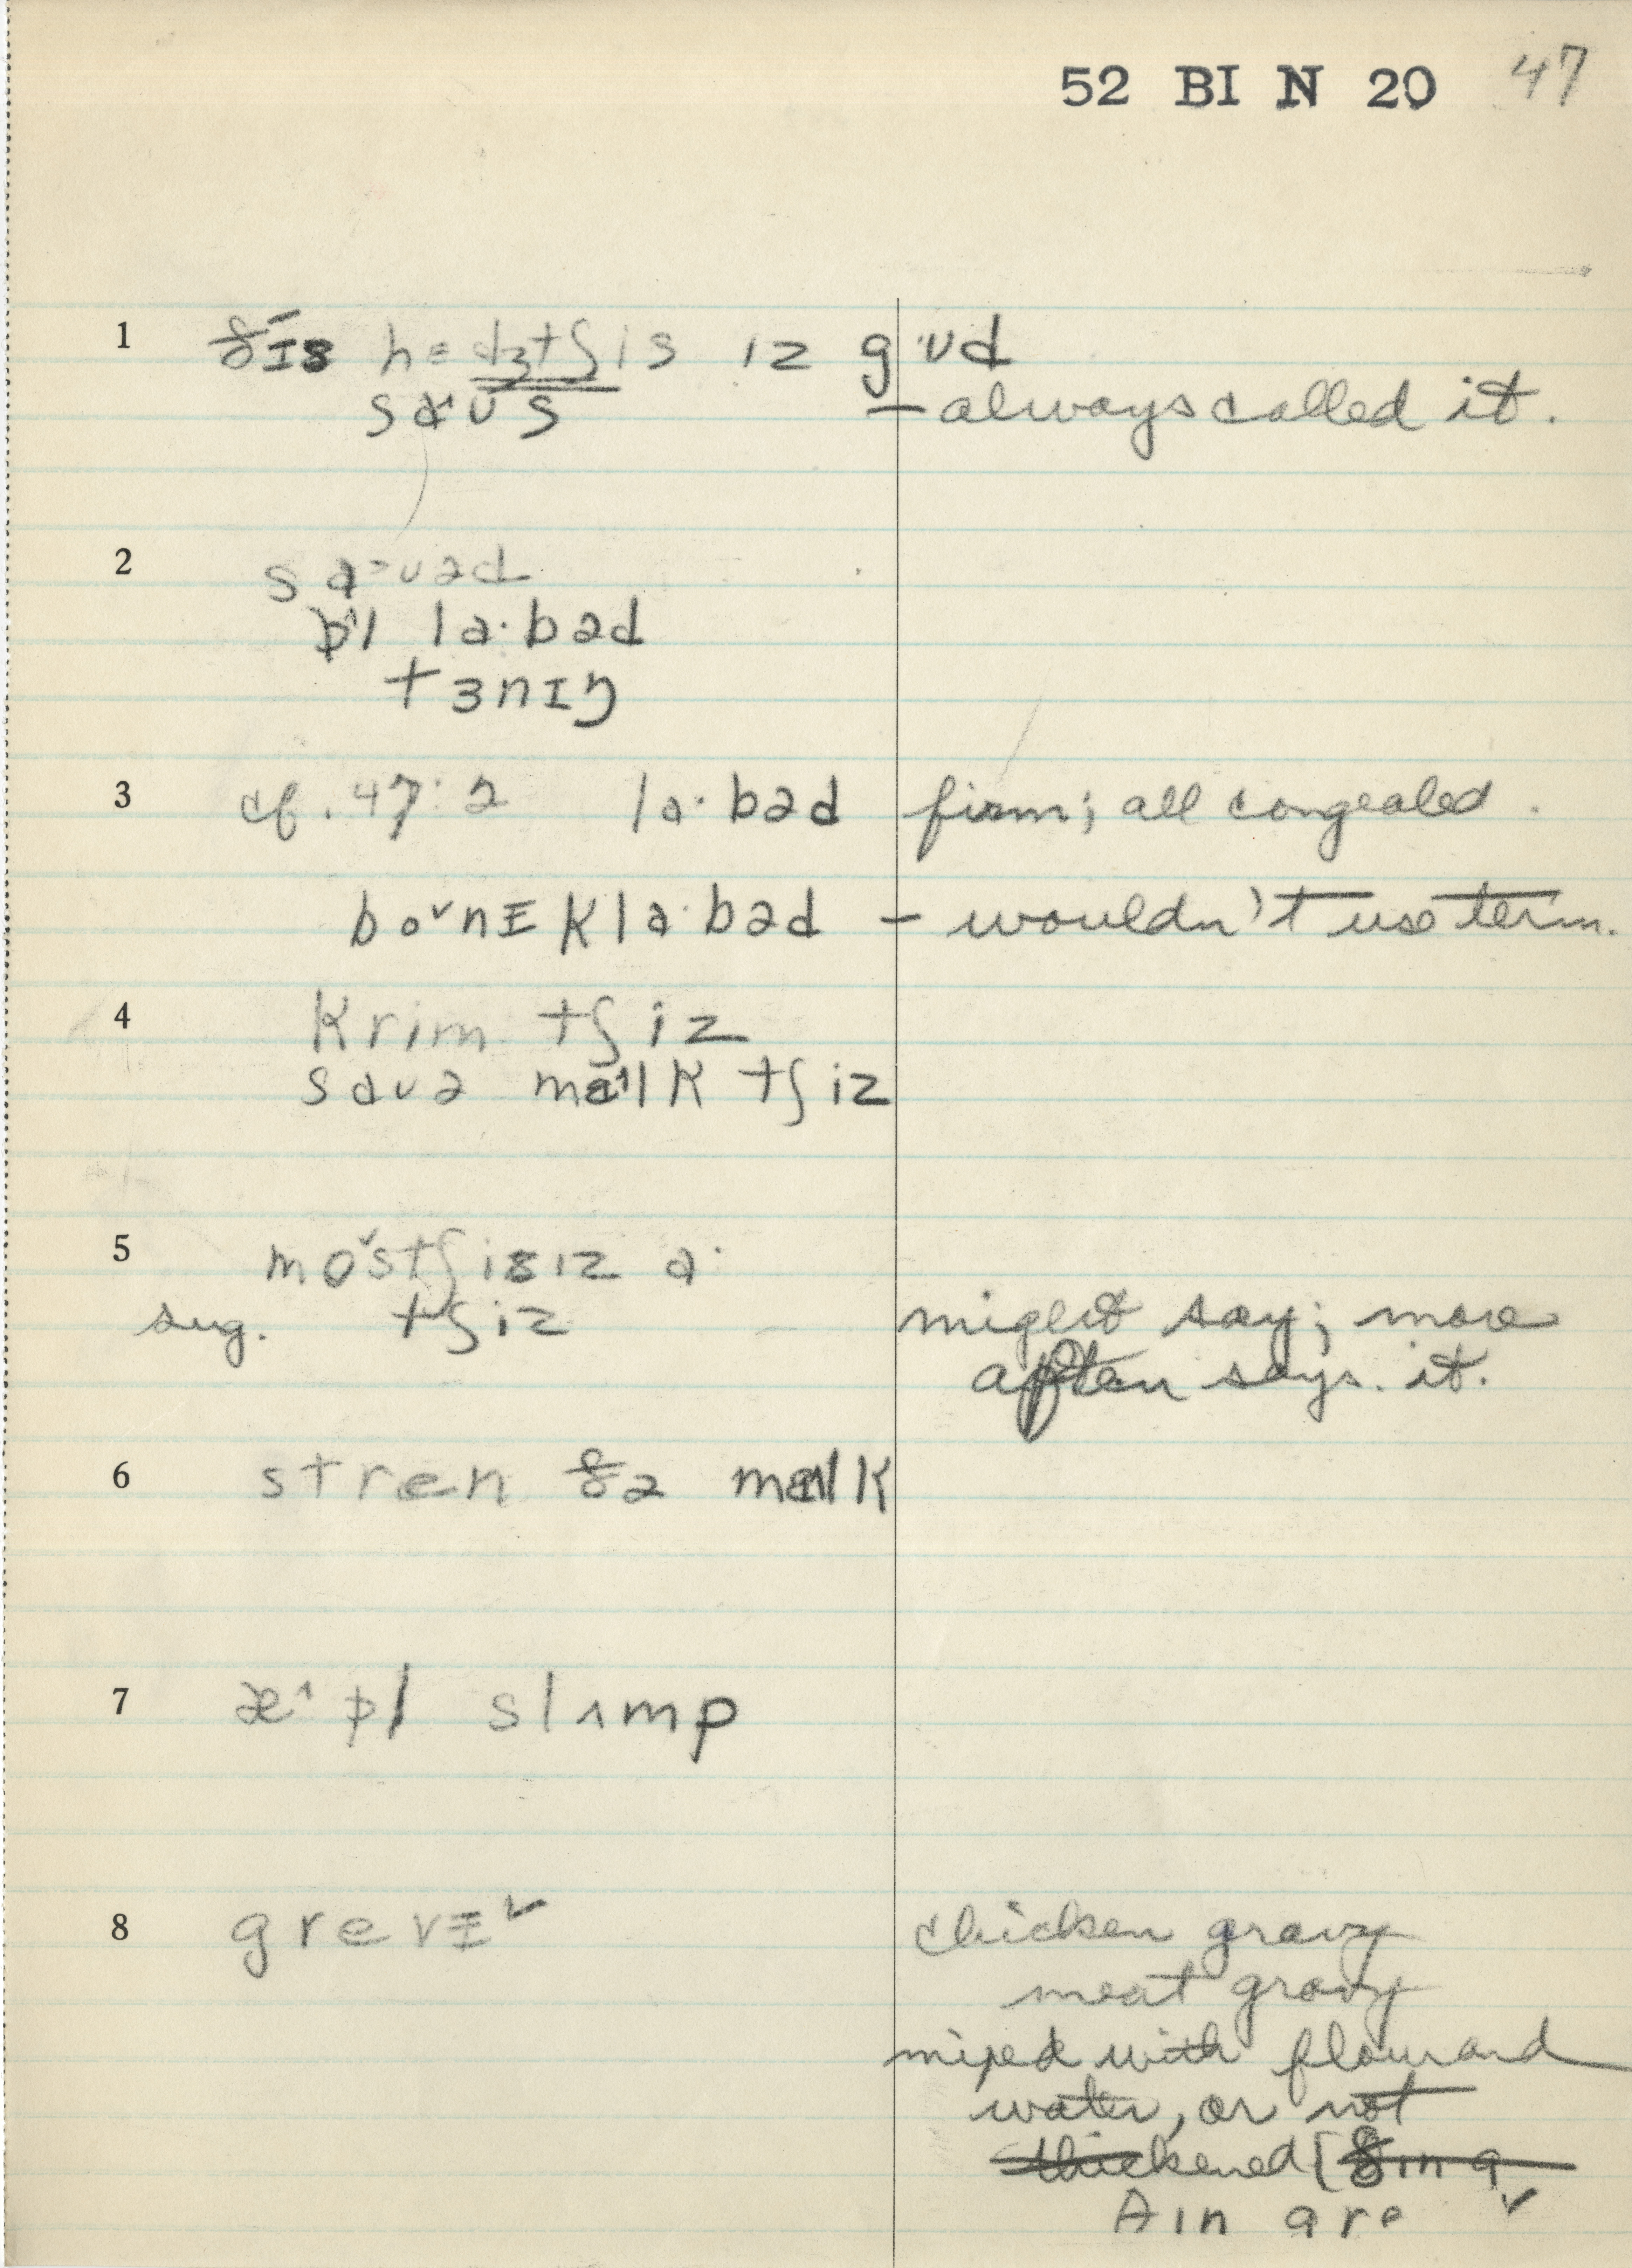 52 BI N 20 47
1 ðɪs hɛdʒtʃis ɪz gʊd
saʊs — always called it.
2 saˑuəd
laˑbəd
tɜnɪŋ
3 cf. 47:2 laˑbəd firm; all congealed.
klaˑbəd — wouldn't use term.
4 krim tʃiz
sauə mɪlk tʃiz
5 tʃizɪz
sug. tʃiz might say; more
often says it.
6 stren ðə mɪlk
7 slʌmp
8 chicken gravy
meat gravy
mixed with flour and
water, or not
thickened